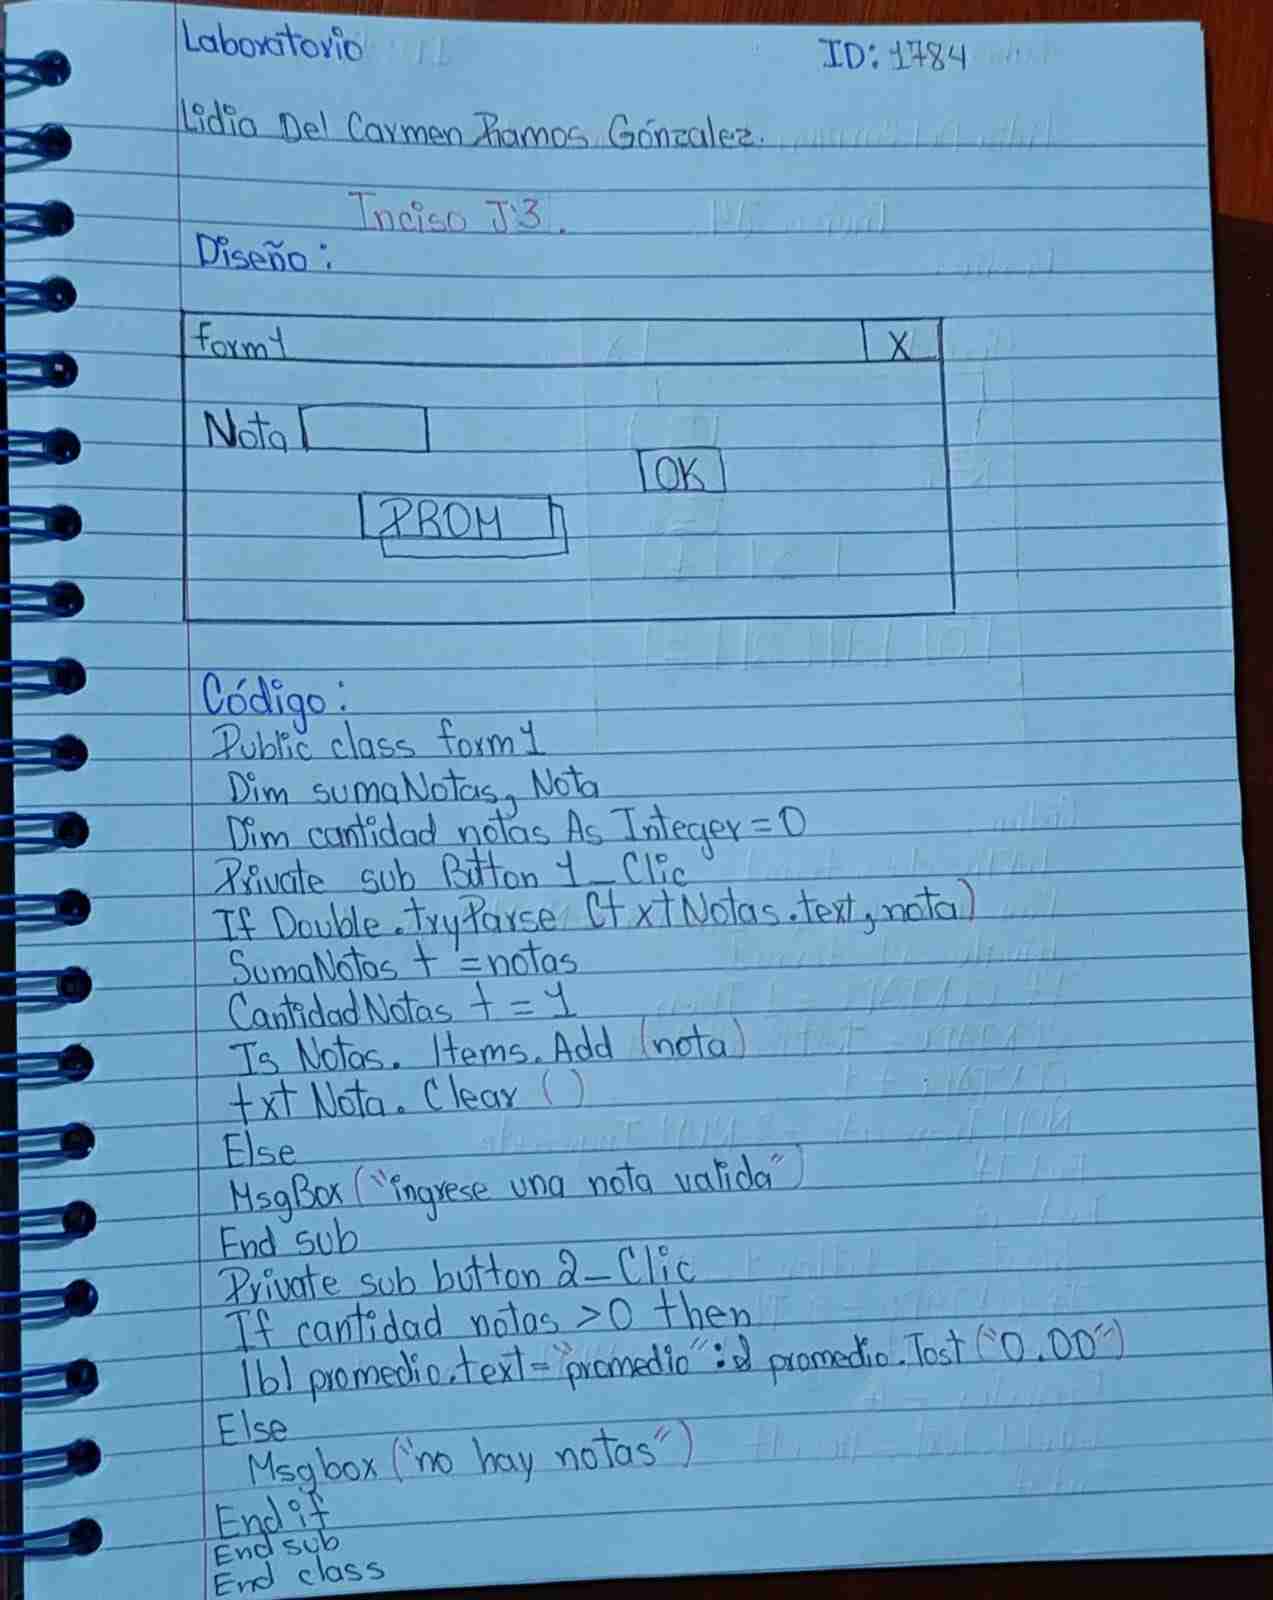 Laboratorio ID: 1784
Lidia Del Carmen Ramos Gónzalez.
Inciso J:3.
Diseño:
form1 X
Nota
OK
PROM
Código:
Public class form1
Dim sumaNotas, Nota
Dim cantidad notas As Integer = 0
Private sub Button 1_Clic
If Double.tryParse (txtNotas.text, nota)
SumaNotas + = notas
CantidadNotas + = 1
Is Notas. Items. Add (nota)
txt Nota. Clear ()
Else
MsgBox ("ingrese una nota valida")
End sub
Private sub button 2_Clic
If cantidad notas >0 then
lbl promedio.text = "promedio": & promedio. Tost ("0.00")
Else
Msgbox ("no hay notas")
End if
End sub
End class